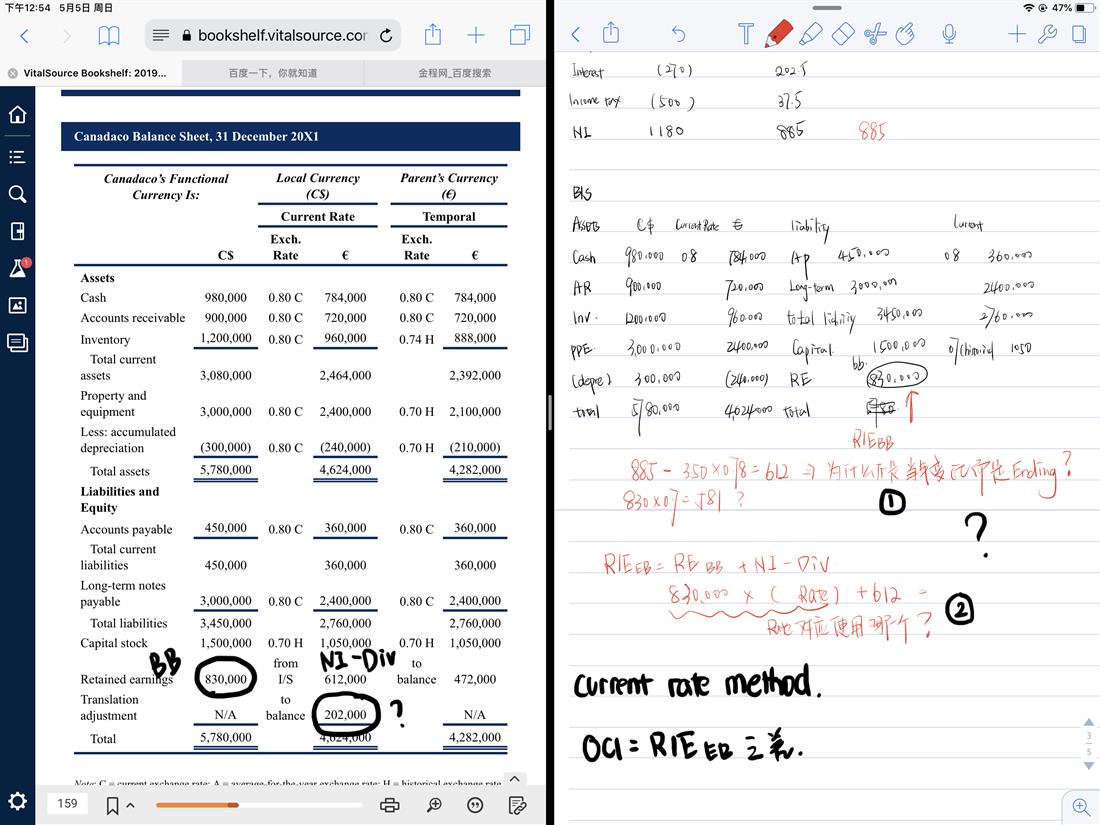 下午12:54 5月5日 周日
47%
bookshelf.vitalsource.cor
VitalSource Bookshelf: 2019...
百度一下，你就知道
金程网_百度搜索
Canadaco Balance Sheet, 31 December 20X1
Canadaco's Functional Currency Is:
Local Currency (C$)
Parent's Currency (€)
Current Rate
Temporal
C$ Exch. Rate € Exch. Rate €
Assets
Cash 980,000 0.80 C 784,000 0.80 C 784,000
Accounts receivable 900,000 0.80 C 720,000 0.80 C 720,000
Inventory 1,200,000 0.80 C 960,000 0.74 H 888,000
Total current assets 3,080,000 2,464,000 2,392,000
Property and equipment 3,000,000 0.80 C 2,400,000 0.70 H 2,100,000
Less: accumulated depreciation (300,000) 0.80 C (240,000) 0.70 H (210,000)
Total assets 5,780,000 4,624,000 4,282,000
Liabilities and Equity
Accounts payable 450,000 0.80 C 360,000 0.80 C 360,000
Total current liabilities 450,000 360,000 360,000
Long-term notes payable 3,000,000 0.80 C 2,400,000 0.80 C 2,400,000
Total liabilities 3,450,000 2,760,000 2,760,000
Capital stock 1,500,000 0.70 H 1,050,000 0.70 H 1,050,000
BB NI-Div
Retained earnings 830,000 from I/S 612,000 to balance 472,000
Translation adjustment N/A to balance 202,000 ? N/A
Total 5,780,000 4,624,000 4,282,000
Note: C = current exchange rate; A = average-for-the-year exchange rate; H = historical exchange rate
159
Interest (270) 202.5
Income tax (500) 37.5
NI 1180 885 885
B/S
Assets C$ Current Rate € liability Current
Cash 980,000 0.8 784,000 Ap 450,000 0.8 360,000
AR 900,000 720,000 Long-term 3000,000 2400,000
Inv. 1200,000 960,000 total liability 3450,000 2760,000
PPE. 3,000,000 2400,000 Capital. 1500,000 0.7 1050
(depre) 300,000 (240,000) RE bb. 830,000
total 5780,000 4,624,000 total 5780
R/E BB
885 - 350×0.78=612 ⇒ 为什么不是Ending?
830×0.7=581 ?
①
?
R/E EB = RE BB + NI - Div
830,000 × ( Rate ) + 612 =
②
Rate 对应使用哪个?
current rate method.
OCI = R/E EB 之差.
3
5